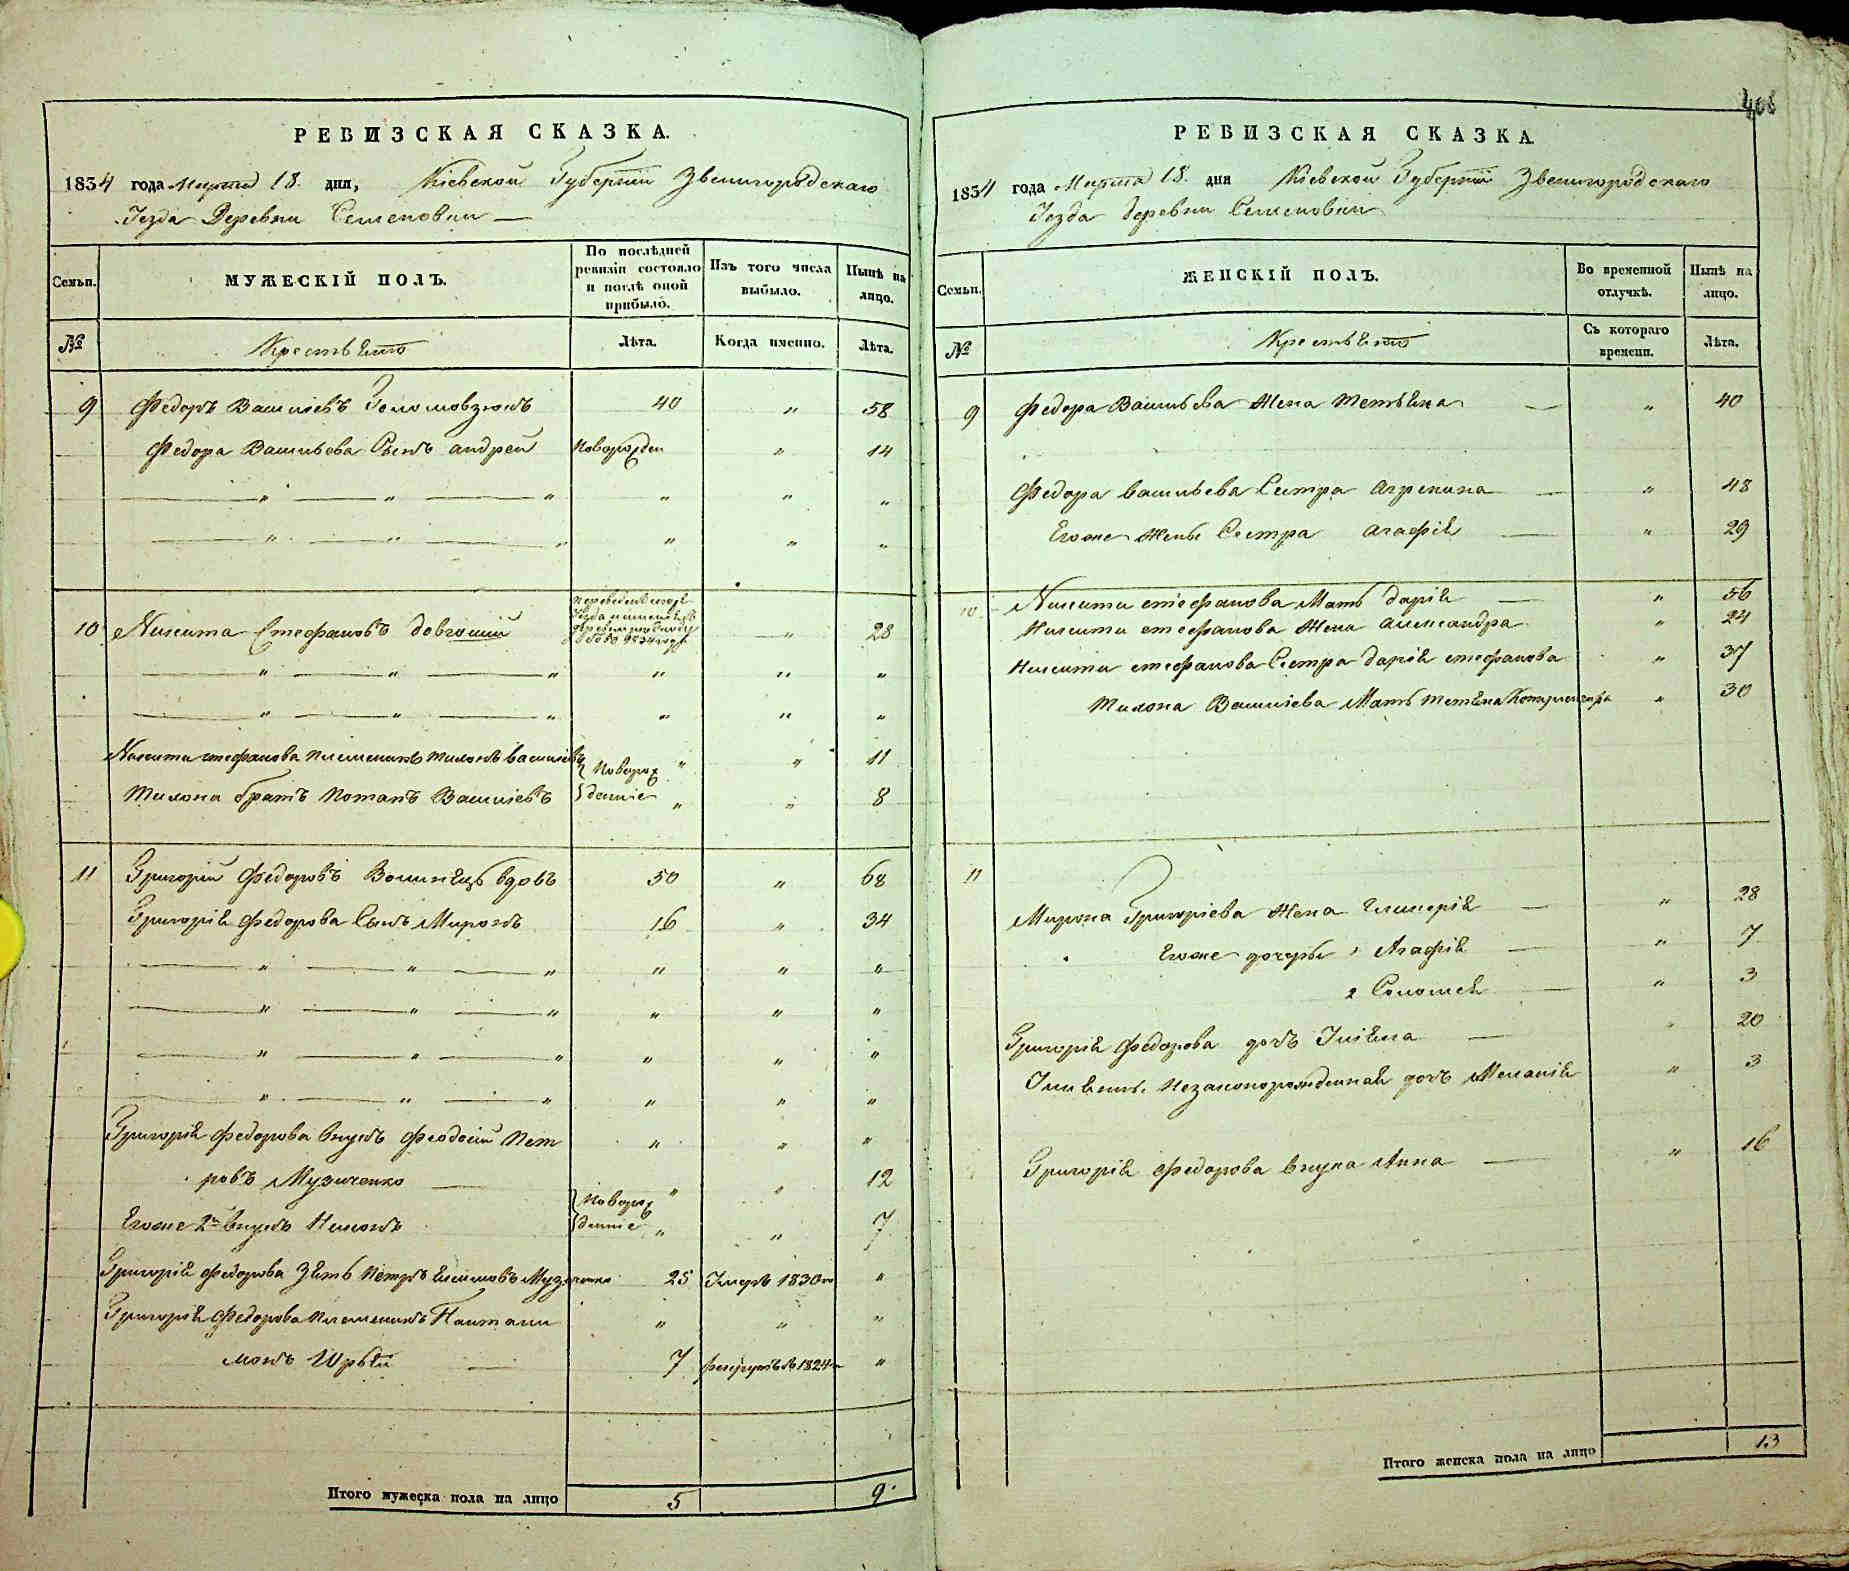 РЕВИЗСКАЯ СКАЗКА.
1834 года Марта 18. дня, Кіевской Губерніи Звенигородскаго
Уезда Деревни Семеновки
Семьи. МУЖЕСКІЙ ПОЛЪ. По послѣдней ревизіи состояло и послѣ оной прибыло. Изъ того числа выбыло. Нынѣ на лицо.
№ Крестьянъ Лѣта. Когда именно. Лѣта.
9 Федоръ Васильевъ 40 " 58
Федора Васильева Сынъ андрей новорожден " 14
" " " " " "
" " " " " "
10 Никита Стефановъ довгошій " 28
" " " " " "
" " " " " "
Никиты стефанова племеникъ Милонъ василіевъ } новорож " " 11
Милона братъ Потапъ Василіевъ } деніе " " 8
11 Григорій Федоровъ Волинецъ вдовъ 50 " 68
Григорія Федорова Сынъ Миронъ 16 " 34
" " " " " "
" " " " " "
" " " " " "
" " " " " "
Григорія Федорова внукъ Феодосій Пет " " "
ровъ Музиченко " " 12
Егоже 2й внукъ Никонъ } новорож деніе " " 7
Григорія Федорова Зять Петръ Музиченко 25 Умеръ 1830го "
Григорія Федорова племеникъ Пантели " " "
монъ Юрьев 7 1824го "
Итого мужеска пола на лицо 5 9.
408
РЕВИЗСКАЯ СКАЗКА.
1834 года Марта 18. дня Кіевской Губерніи Звенигородскаго
Уезда деревни Семеновки
Семьи. ЖЕНСКІЙ ПОЛЪ. Во временной отлучкѣ. Нынѣ на лицо.
№ Крестьянъ Съ котораго времени. Лѣта.
9 Федора Васильева Жена Тетяна " 40
Федора васильева Сестра Агрипина " 48
Егоже жены Сестра агафія " 29
10 Никиты стефанова Мать дарія " 56
Никиты стефанова Жена александра " 24
Никиты стефанова Сестра дарія стефанова " 37
Милона Василіева Мать тетяна " 30
11
Мирона Григоріева жена Гликерія " 28
Егоже дочеры 1 Агафія " 7
2 Соломея " 3
Григорія Федорова дочь Уліяна " 20
Уліяны Незаконорожденная дочь Меланія " 3
Григорія Федорова внука Анна " 16
Итого женска пола на лицо 13